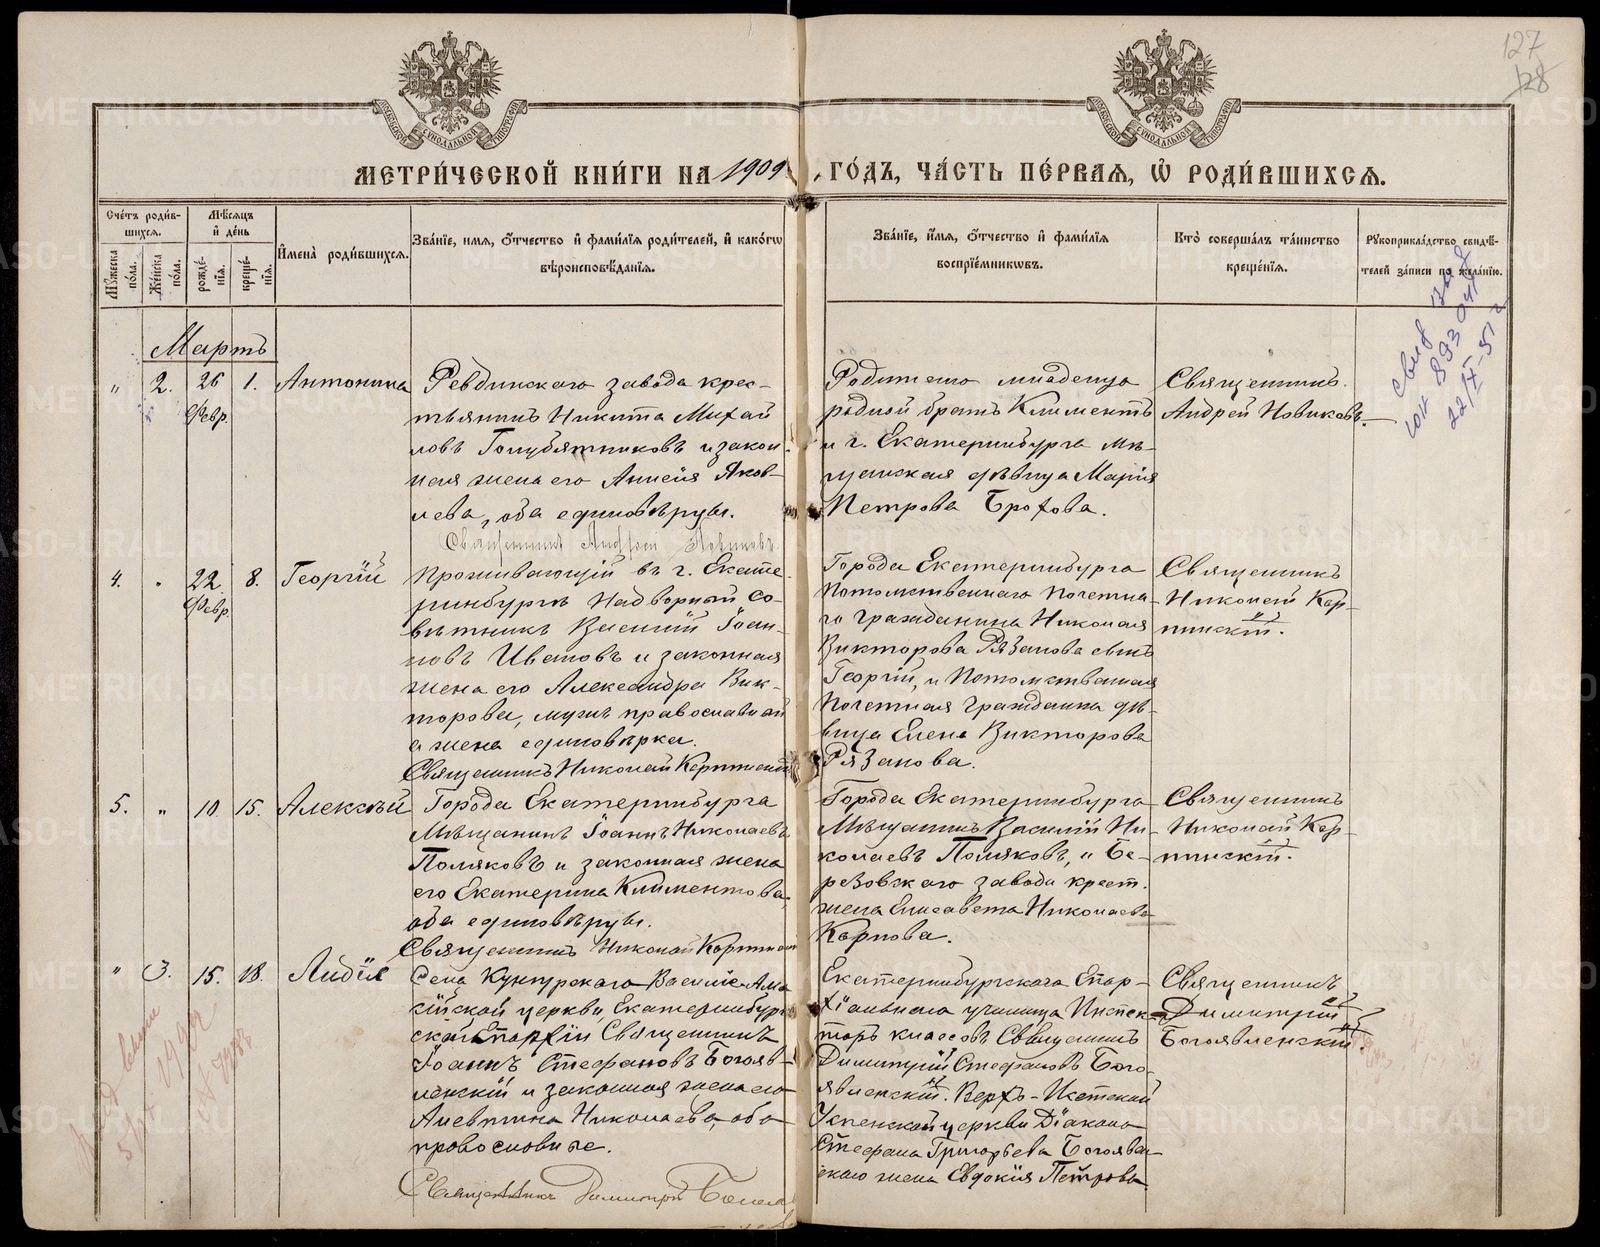 127
128
СѴНОДАЛЬНОЙ
СѴНОДАЛЬНОЙ
МЕТРИ́ЧЕСКОЙ КНИ́ГИ НА 1909 ГО́ДЪ, ЧА́СТЬ ПЕ́РВАѦ, Ѡ҆ РОДИ́ВШИХСѦ.
Сче́тъ роди́в-
шихсѧ.
Мꙋ́жеска по́ла.
Же́нска по́ла.
Мѣ́сѧцъ
и҆ де́нь
рожде́-
нїѧ.
креще́-
нїѧ.
И҆мена̀ роди́вшихсѧ.
Зва́нїе, имѧ, ѻ҆́тчество и҆ фами́лїѧ роди́телей, и҆ како́гѡ
вѣ́роисповѣ́данїѧ.
Зва́нїе, и҆́мѧ, ѻ҆́тчество и҆ фами́лїѧ
воспрїе́мникѡвъ.
Кто̀ соверша́лъ та́инство
креще́нїѧ.
Рꙋкоприкла́дство свидѣ́-
телей за́писи по жела́нїю.
Мартъ
" 2. 26 Февр. 1. Антонина
Ревдинскаго завода крес-
тьянинъ Никита Михай
ловъ Голубятниковъ и закон
ная жена его Аннсія Яков-
лева, оба единовѣрцы.
Священникъ Андрей Новиковъ
Родителю младенца
родной братъ Климентъ
и г. Екатеринбурга мѣ-
щанская дѣвица Марія
Петрова Брохова.
Священникъ
Андрей Новиковъ.
4. " 22 Февр. 8. Георгій
Проживающій въ г. Екате
ринбургѣ Надворный со-
вѣтникъ Василій Іоан-
новъ Ивановъ и законная
жена его Александра Вик-
торова, мужъ православный
а жена единовѣрка.
Священникъ Николай Карпинскій
Города Екатеринбурга
Потомственнаго Почетна-
го гражданина Николая
Викторова Рязанова сынъ
Георгій, и Потомственная
Почетная гражданка дѣ-
вица Елена Викторова
Рязанова.
Священникъ
Николай Кар-
пинскій.
5. " 10 15. Алексѣй
Города Екатеринбурга
Мѣщанинъ Іоаннъ Николаевъ
Поляковъ и законная жена
его Екатерина Климентова,
оба единовѣрцы.
Священникъ Николай Карпинскій
Города Екатеринбурга
Мѣщанинъ Василій Ни-
колаевъ Поляковъ, и Бе-
резовскаго завода крест.
жена Елисавета Николаева
Карпова.
Священникъ
Николай Кар-
пинскій.
" 3. 15. 18. Лидія
Села Кунгурскаго Василіе-Ама
сійской церкви, Екатеринбург
ской Епархіи Священникъ
Іоаннъ Стефановъ Богояв-
ленскій и законная жена его
Алевтина Николаева, оба
православные.
Священникъ Димитрій Богояв
Екатеринбургскаго Епар-
хіальнаго училища Инспек-
торъ классовъ Священникъ
Димитрій Стефановъ Бого-
явленскій. Верхъ-Исетской
Успенской церкви Діакона
Стефана Григорьева Богоявлен-
скаго жена Евдокія Петрова
Священникъ
Димитрій
Богоявленскій.